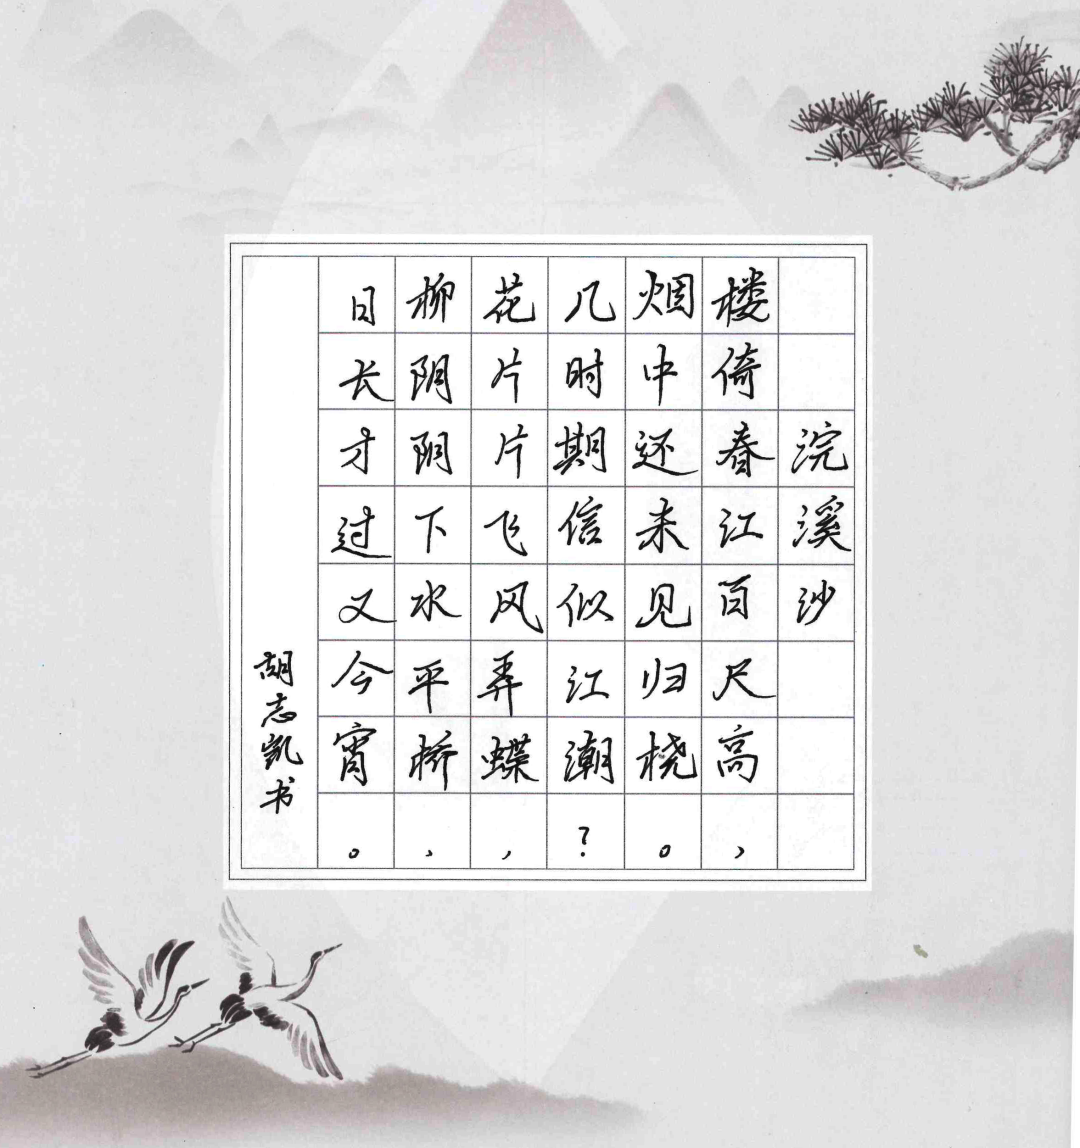 浣溪沙
楼倚春江百尺高，
烟中还未见归桡。
几时期信似江潮？
花片片飞风弄蝶，
柳阴阴下水平桥，
日长才过又今宵。
胡志凯书